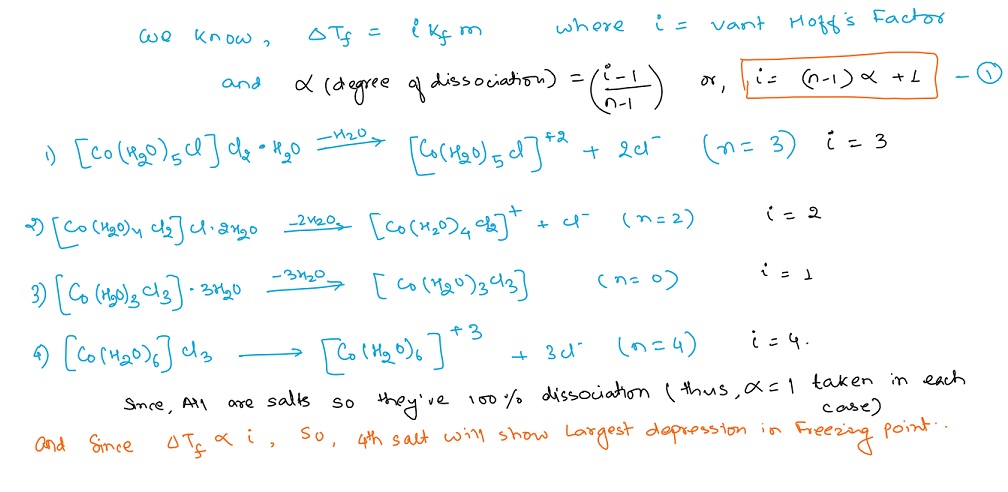 we know, ΔTf = i Kf m where i = vant Hoff's Factor
and α (degree of dissociation) = (i-1/n-1) or, i = (n-1) α + 1 - ①
1) [Co(H2O)5Cl]Cl2 • H2O -H2O→ [Co(H2O)5Cl]+2 + 2Cl- (n = 3) i = 3
2) [Co(H2O)4Cl2]Cl. 2H2O -2H2O→ [Co(H2O)4Cl2]+ + Cl- (n=2) i = 2
3) [Co(H2O)3Cl3] • 3H2O -3H2O→ [Co(H2O)3Cl3] (n=0) i = 1
4) [Co(H2O)6]Cl3 → [Co(H2O)6]+3 + 3Cl- (n=4) i = 4.
Since, All are salts so they've 100% dissociation (thus, α=1 taken in each
case)
and Since ΔTf α i, So, 4th salt will show Largest depression in Freezing point..